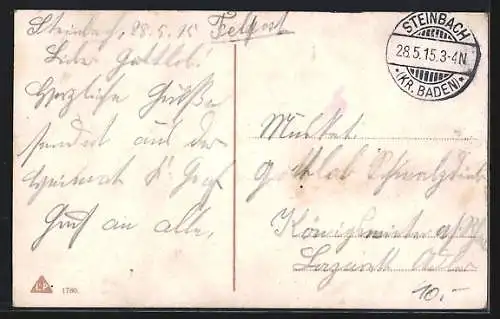 Steinbach, 28.5.15 Feldpost
Lieber Gottlob!
Herzliche Grüße
sendet aus der
Heimat
Gruß an alle.
STEINBACH
28.5.15.3-4N.
(KR. BADEN)
Musket.
Gottlob
Königswinter a/Rh
Lazarett Adler
10.-
1780.